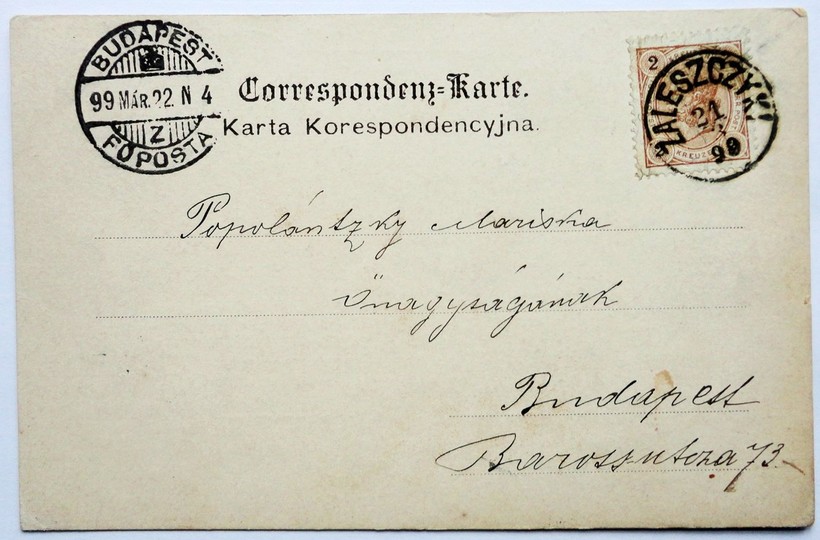 BUDAPEST
99 MÁR. 22. N 4
Z
FŐPOSTA
Correspondenz-Karte.
Karta Korespondencyjna.
2
KREUZER
ZALESZCZYKI
21
99
Popolántzky Mariska
Őnagyságának
Budapest
Baross-utcza 73.